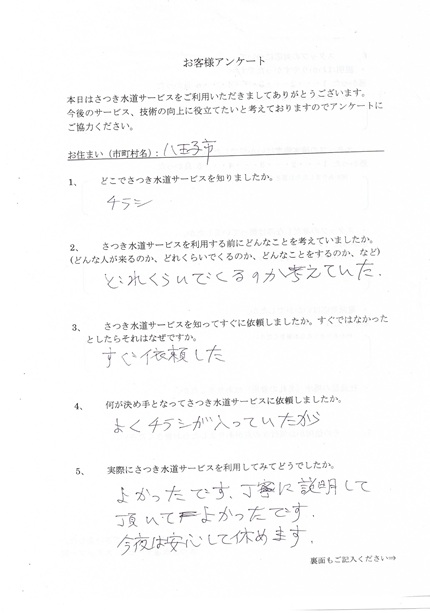 お客様アンケート
本日はさつき水道サービスをご利用いただきましてありがとうございます。
今後のサービス、技術の向上に役立てたいと考えておりますのでアンケートに
ご協力ください。
お住まい（市町村名）：八王子市
1、 どこでさつき水道サービスを知りましたか。
チラシ
2、 さつき水道サービスを利用する前にどんなことを考えていましたか。
(どんな人が来るのか、どれくらいでくるのか、どんなことをするのか、など)
どれくらいでくるのか考えていた.
3、 さつき水道サービスを知ってすぐに依頼しましたか。すぐではなかった
としたらそれはなぜですか。
すぐ依頼した
4、 何が決め手となってさつき水道サービスに依頼しましたか。
よくチラシが入っていたから
5、 実際にさつき水道サービスを利用してみてどうでしたか。
よかったです、丁寧に説明して
頂いてよかったです.
今夜は安心して休めます.
裏面もご記入ください⇒